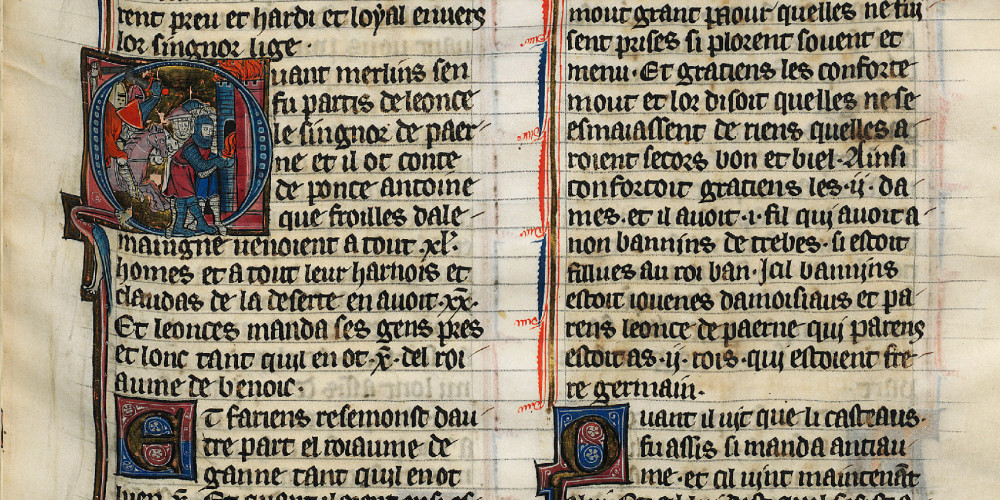 tent preu et hardi et loyal envers
lor singnor lige ·
Quant merlins sen
fu partis de leonce
le singnor de paer-
ne et il ot conte
de ponce antoine
que froilles dale-
maingne venoient a tout .xl.
homes et a tout leur harnois et
claudas de la deserte en avoit .xx.
Et leonces manda ses gens pres
et lonc tant quil en ot .x. del roi-
aume de benoic.
Et fariens resemonst dau-
tre part el roiaume de
ganne tant quil en ot
mout grant paour quelles ne fus-
sent prises si plorent souent et
menu. Et graciens les conforte
mout et lor disoit quelles ne se
esmaiassent de riens quelles a-
roient secors bon et biel. Ainsi
confortoit graciens les .ij. da-
mes. et il avoit .i. fil qui avoit a
non bannins de trebes. si estoit
fillues au roi ban. Icil bannins
estoit iouenes damoisiaus et pa-
rens leonce de paerne qui parens
estoit as .ij. rois. qui estoient fre-
re germain.
Quant il vit que li casteaus.
fu assis si manda antiau-
me. et cil vint maintenant